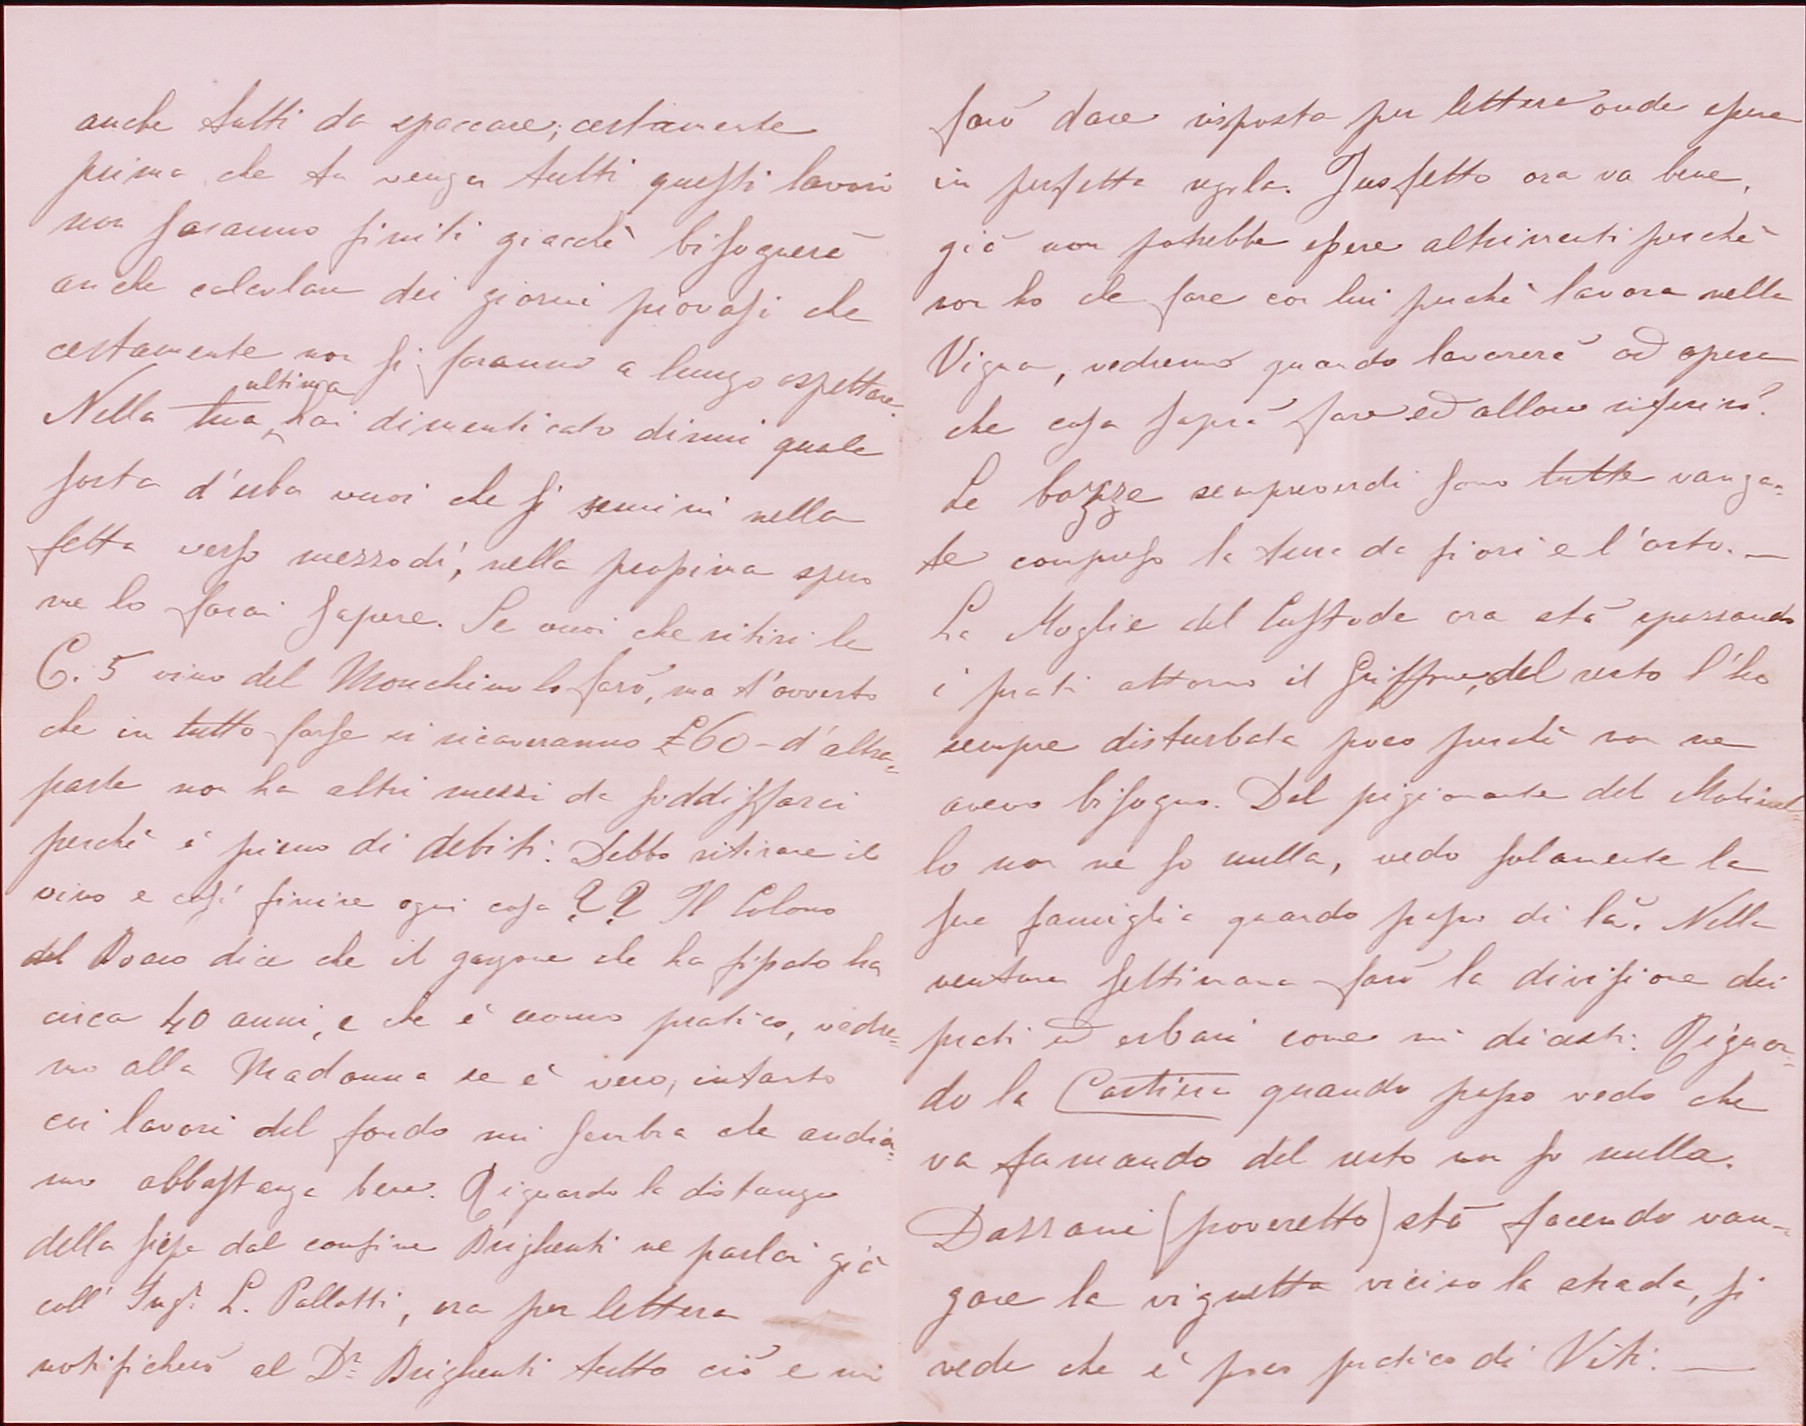 anche tutti da spaccare; certamente
prima che tu venga tutti questi lavori
non saranno finiti giacchè bisognerà
anche calcolare dei giorni piovosi che
certamente non si faranno a lungo aspettare.
Nella tua ultima hai dimenticato dirmi quale
sorta d'erba vuoi che si semini nella
fetta verso mezzodì, nella prossima spero
me lo farai sapere. Se vuoi che ritiri le
C. 5 vino del Monchino lo farò, ma t'avverto
che in tutto forse si ricaveranno £60 - d'altra=
parte non ha altri mezzi da soddisfarci
perchè è pieno di debiti. Debbo ritirare il
vino e così finire ogni cosa?? Il Colono
del Rocco dice che il garzone che ha fissato ha
circa 40 anni, e che è uomo pratico, vedre=
mo alla Madonna se è vero, intanto
coi lavori del fondo mi sembra che andia=
mo abbastanza bene. Riguardo la distanza
della siepe dal confine Brighenti ne parlai già
coll' Ingr. L. Pallotti, ora per lettera
notificherò al Dr. Brighenti tutto ciò e mi
farò dare risposta per lettera onde essere
in perfetta regola. Giuseffetto ora va bene,
già non potrebbe essere altrimenti perchè
non ho che fare con lui perchè lavora nella
Vigna, vedremo quando lavorerà ad opera
che cosa saprà fare ed allora riferirò.
Le bozze sempreverdi sono tutte vanga=
te compreso la terra da fiori e l'orto. —
La Moglie del Custode ora stà spazzando
i prati attorno il Griffone, del resto l'ho
sempre disturbata poco perchè non ne
avevo bisogno. Del pigionante del Molinel=
lo non ne so nulla, vedo solamente la
sua famiglia quando passo di là. Nella
ventura settimana farò la divisione dei
prati ed erbari come mi dicesti. Riguar=
do la Cantina quando passo vedo che
va fumando del resto non so nulla.
Dazzani (poveretto) stà facendo van=
gare la vignetta vicino la strada, si
vede che è poco pratico di Viti. —